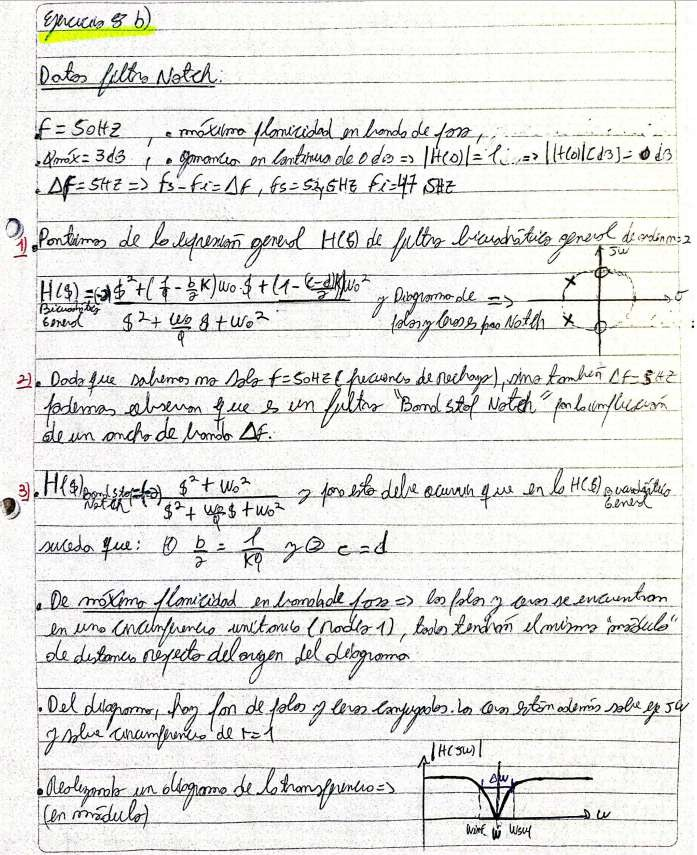 Ejercicio 8 b)
Datos filtro Notch:
f = 50Hz , • máxima planicidad en banda de paso,
• αmáx = 3dB , • ganancia en continua de 0 dB => |H(0)| = 1 => |H(0)|[dB] = 0 dB
• Δf = 5Hz => fs - fi = Δf , fs = 52,5Hz fi = 47,5Hz
1) • Partimos de la expresión general H($) de filtro bicuadrático general de orden n=2
H($) = (-a) $² + (1/q - b/2 K) w0 $ + (1 - (c-d)/2 K) w0²
Bicuadrático General
$² + w0/q $ + w0²
y Diagrama de polos y ceros para Notch =>
jw
σ
2) • Dado que sabemos no solo f = 50Hz (frecuencia de rechazo), sino también Δf = 5Hz
podemos observar que es un filtro "Band stop Notch" por la implicación
de un ancho de banda Δf.
3) • H($) Band stop Notch = (-a) $² + w0² / $² + w0/q $ + w0² y para esto debe ocurrir que en la H($) Bicuadrático General
suceda que: ① b/2 = 1/Kq y ② c = d
• De máxima planicidad en banda de paso => los polos y ceros se encuentran
en una circunferencia unitaria (radio 1), todos tendrán el mismo "módulo"
de distancia respecto del origen del diagrama
• Del diagrama, hay par de polos y ceros conjugados. Los ceros están además sobre eje jw
y sobre circunferencia de r = 1
• Realizando un diagrama de la transferencia =>
(en módulo)
|H(jw)|
Δw
w